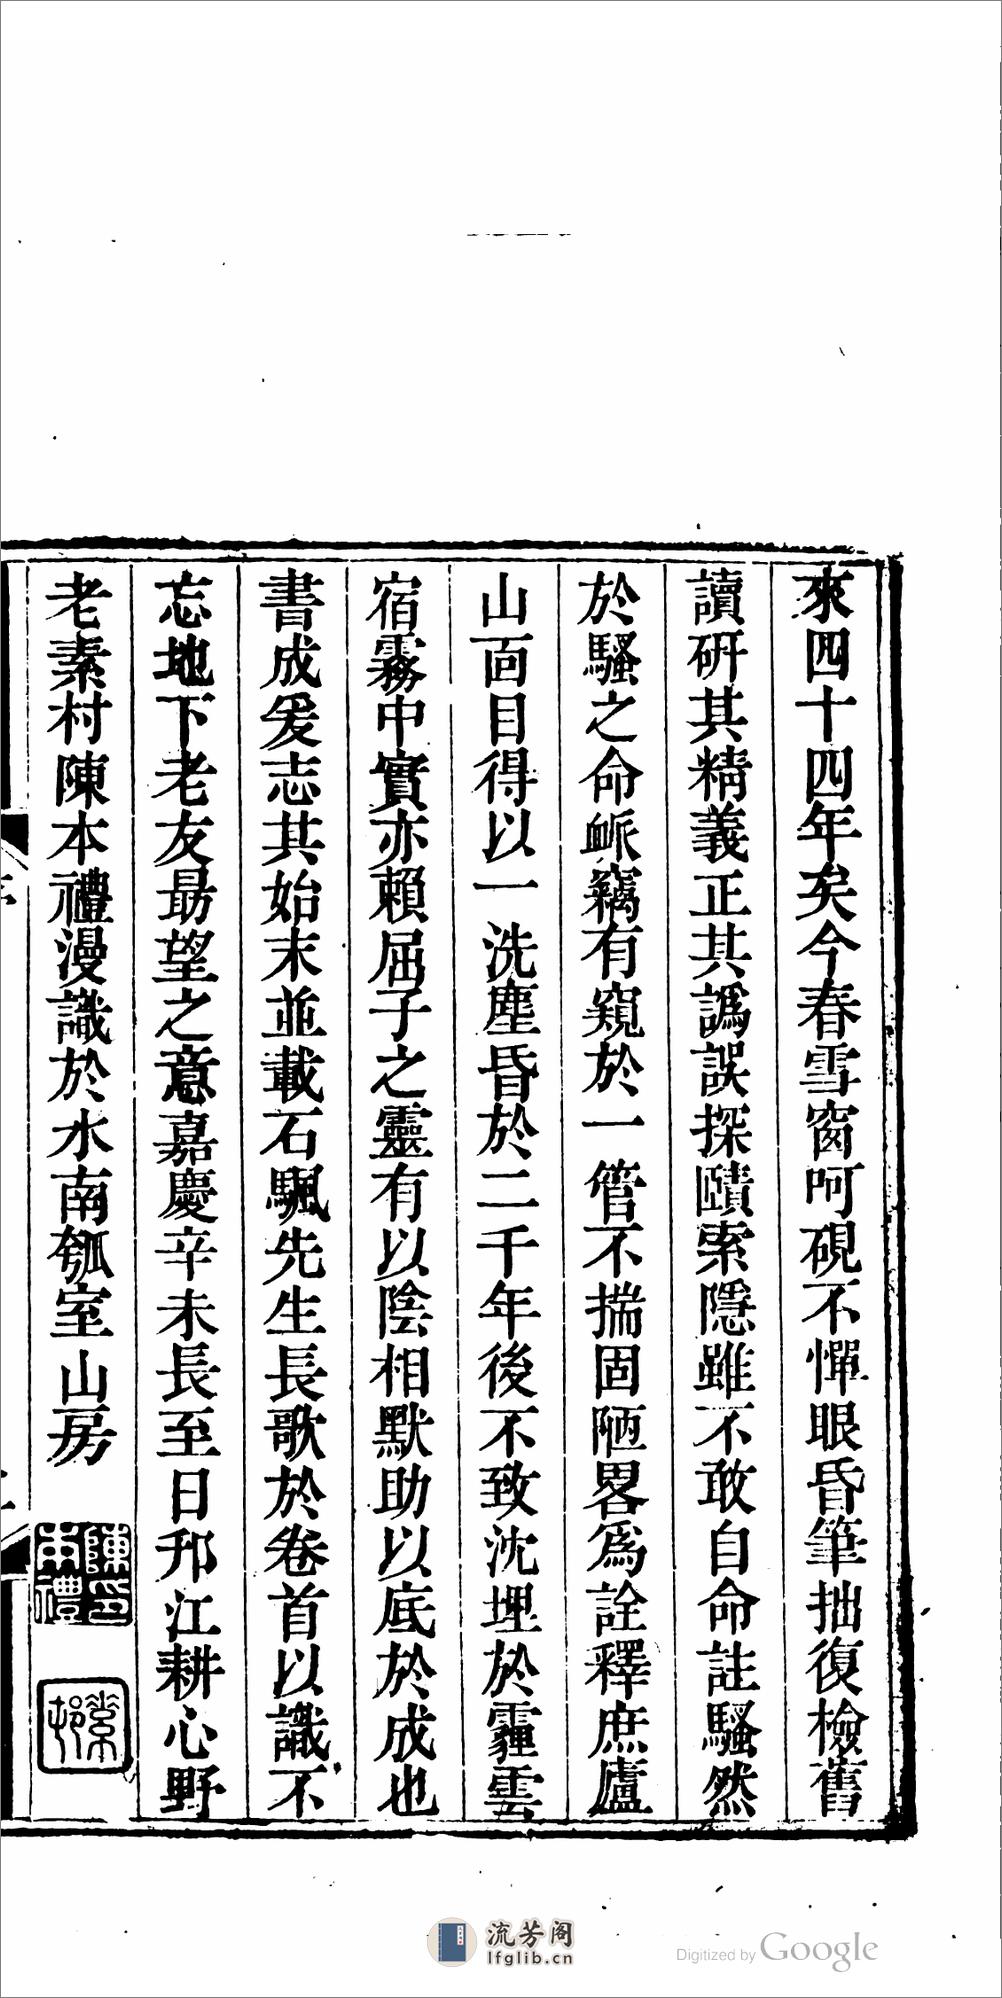 來四十四年矣今春雪窗呵硯不憚眼昏筆拙復檢舊
讀硏其精義正其譌誤探賾索隱雖不敢自命註騷然
於騷之命衇竊有窺於一管不揣固陋畧爲詮釋庶廬
山面目得以一洗塵昏於二千年後不致沈埋於霾雲
宿霧中實亦賴屈子之靈有以陰相默助以底於成也
書成爰志其始末並載石颿先生長歌於卷首以識不
忘地下老友勗望之意嘉慶辛未長至日邗江耕心野
老素村陳本禮漫識於水南瓠室山房
陳本禮印
素村
流芳阁
lfglib.cn
Digitized by Google